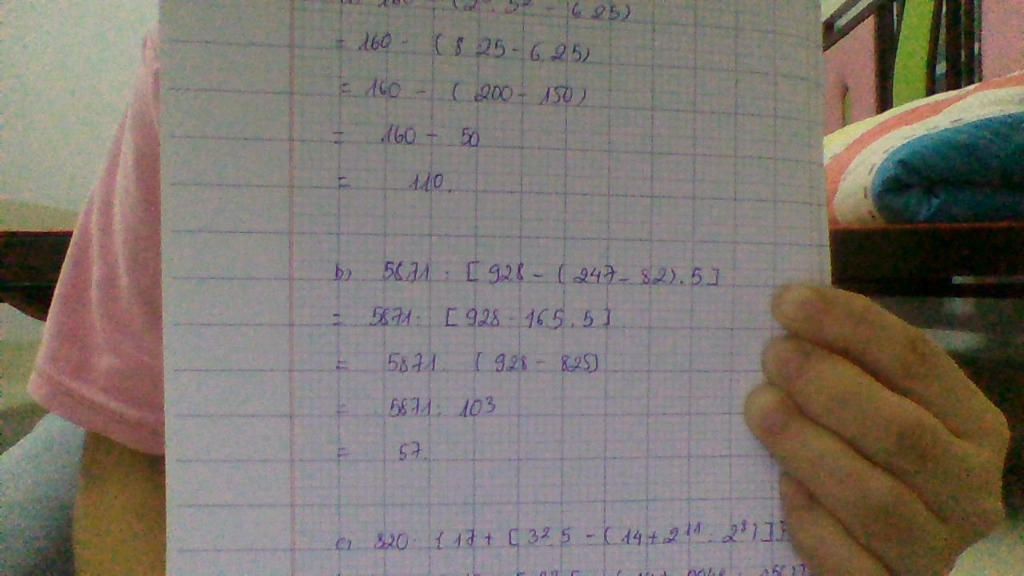 160 - (2³. 5² - 6.25)
= 160 - (8.25 - 6.25)
= 160 - (200 - 150)
= 160 - 50
= 110.
b) 5871 : [928 - (247 - 82).5]
= 5871 : [928 - 165.5]
= 5871 : (928 - 825)
= 5871 : 103
= 57.
c) 820 - {17 + [3².5 - (14 + 2¹¹ : 2⁸)]}